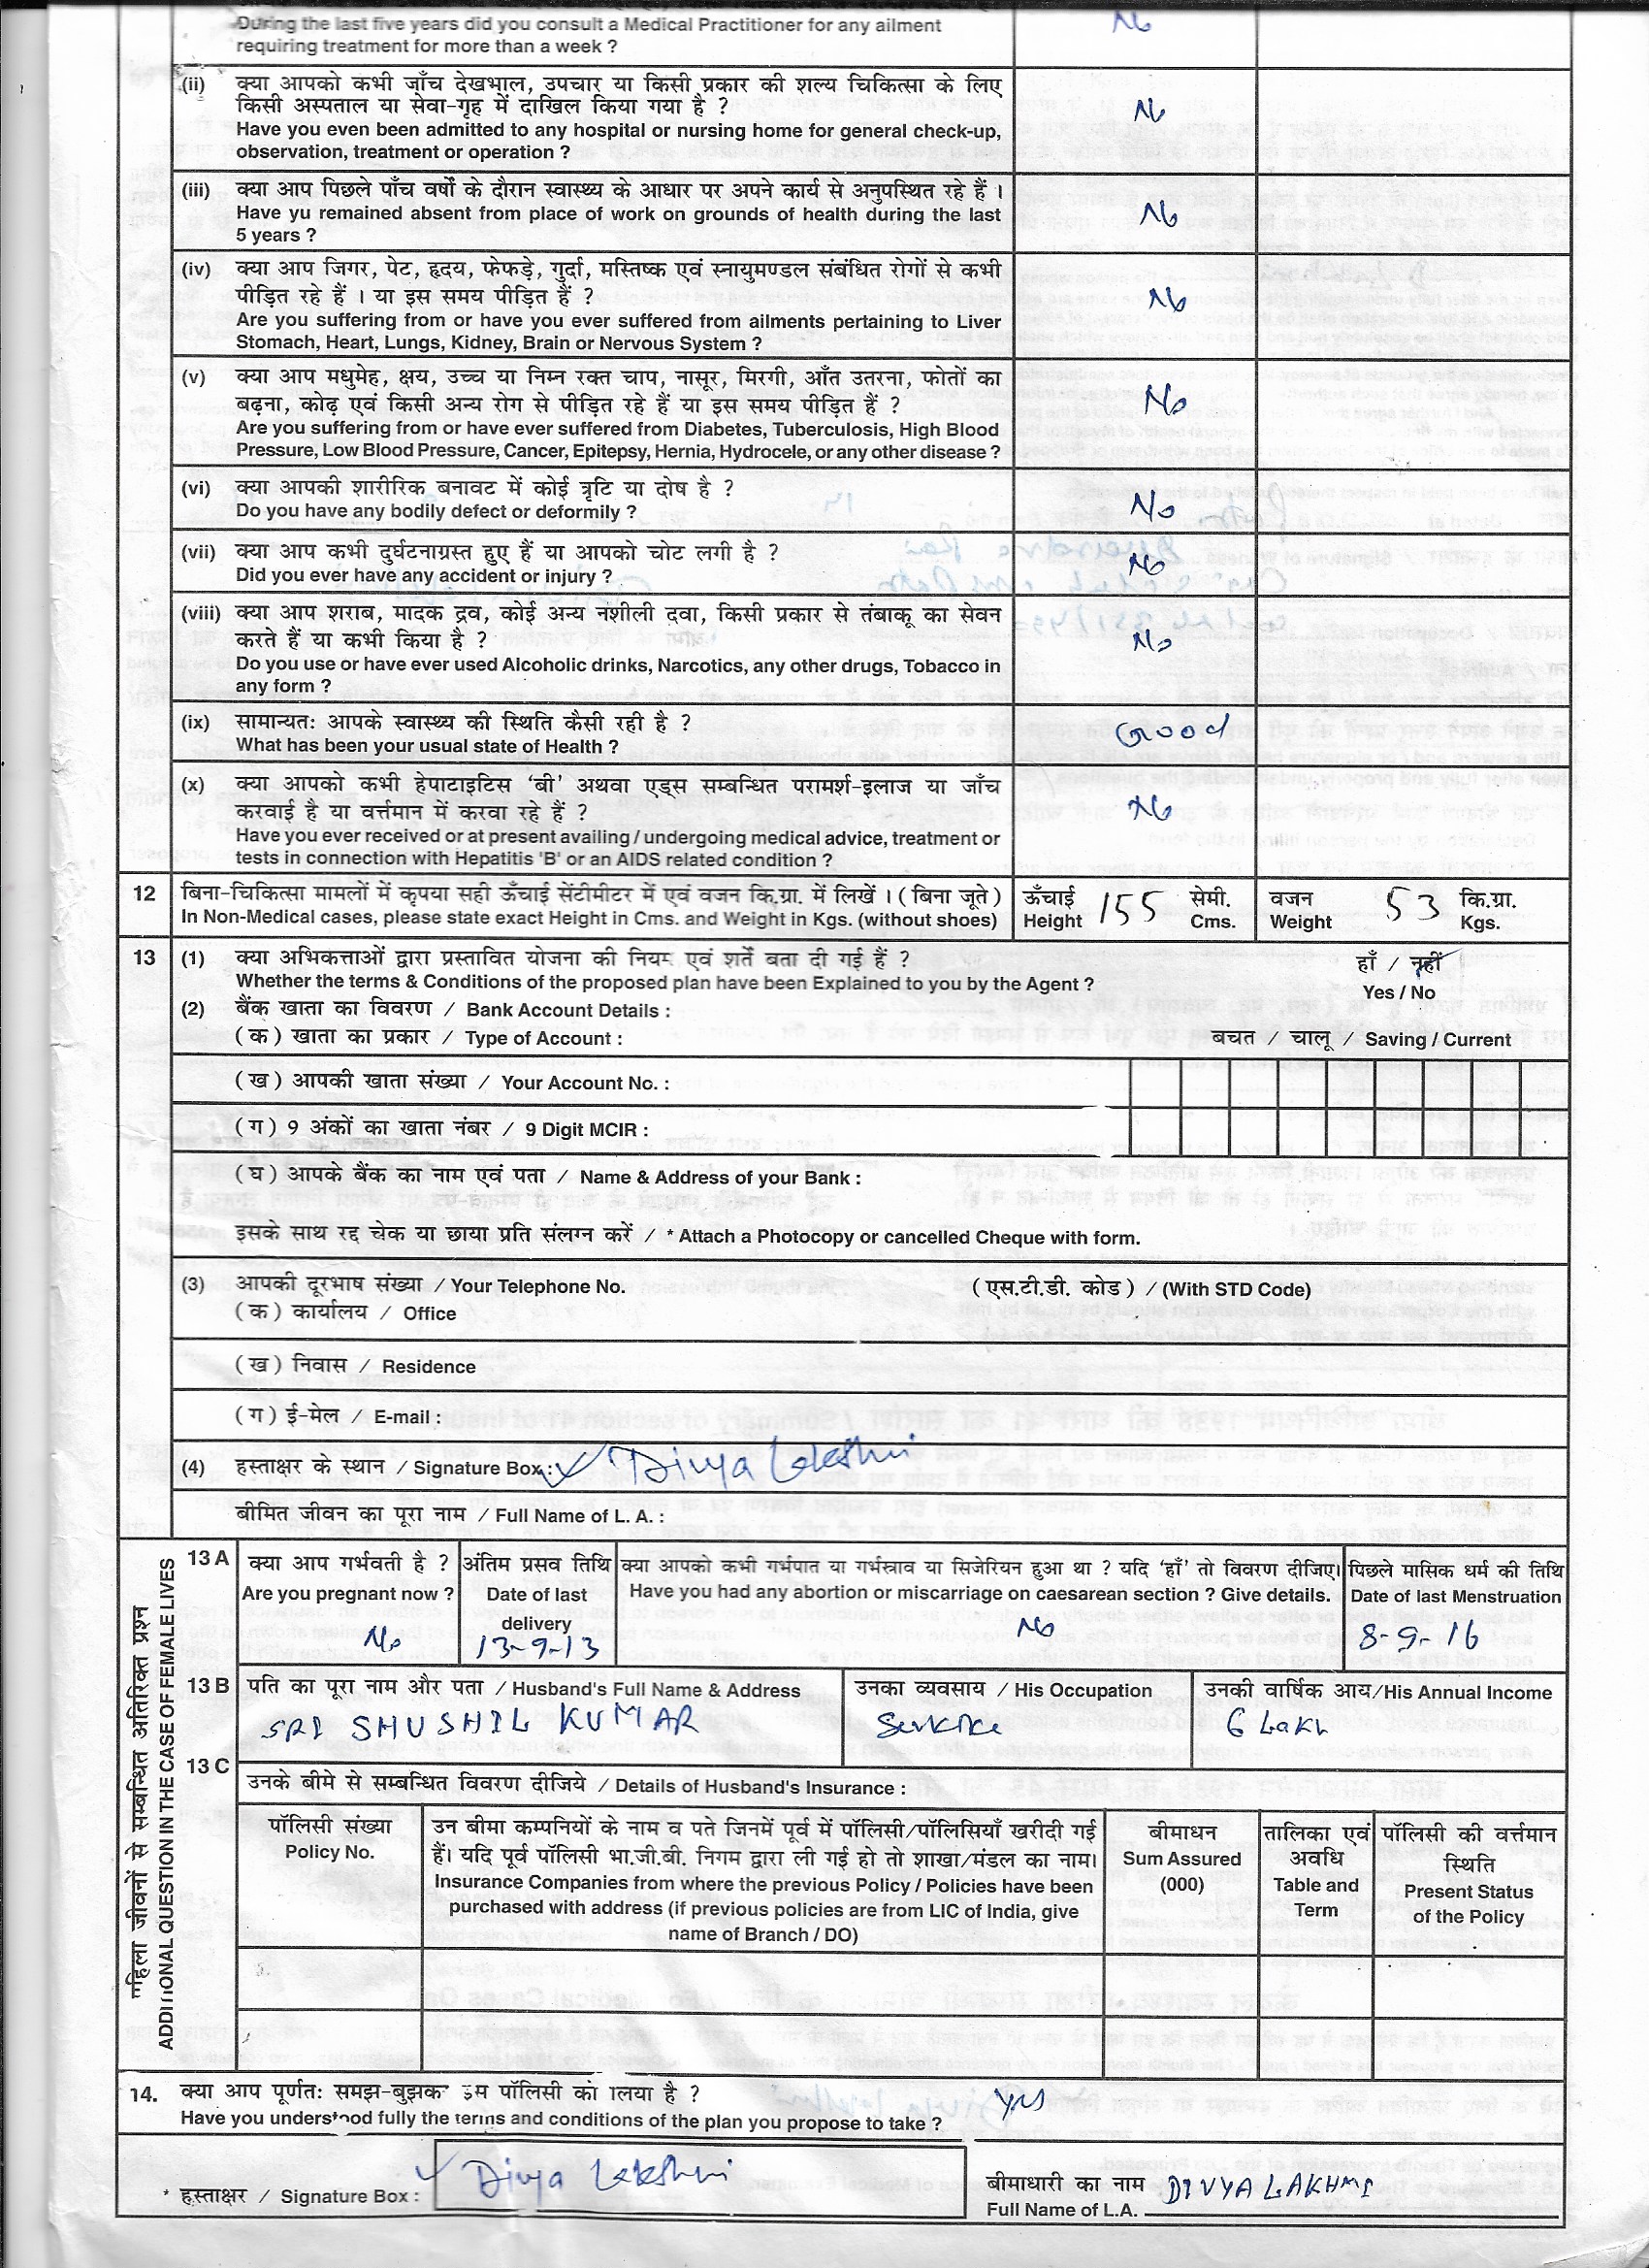 During the last five years did you consult a Medical Practitioner for any ailment
requiring treatment for more than a week ?
No
(ii) क्या आपको कभी जाँच देखभाल, उपचार या किसी प्रकार की शल्य चिकित्सा के लिए
किसी अस्पताल या सेवा-गृह में दाखिल किया गया है ?
Have you even been admitted to any hospital or nursing home for general check-up,
observation, treatment or operation ?
No
(iii) क्या आप पिछले पाँच वर्षों के दौरान स्वास्थ्य के आधार पर अपने कार्य से अनुपस्थित रहे हैं ।
Have yu remained absent from place of work on grounds of health during the last
5 years ?
No
(iv) क्या आप जिगर, पेट, हृदय, फेफड़े, गुर्दा, मस्तिष्क एवं स्नायुमण्डल संबंधित रोगों से कभी
पीड़ित रहे हैं । या इस समय पीड़ित हैं ?
Are you suffering from or have you ever suffered from ailments pertaining to Liver
Stomach, Heart, Lungs, Kidney, Brain or Nervous System ?
No
(v) क्या आप मधुमेह, क्षय, उच्च या निम्न रक्त चाप, नासूर, मिरगी, आँत उतरना, फोतों का
बढ़ना, कोढ़ एवं किसी अन्य रोग से पीड़ित रहे हैं या इस समय पीड़ित हैं ?
Are you suffering from or have ever suffered from Diabetes, Tuberculosis, High Blood
Pressure, Low Blood Pressure, Cancer, Epitepsy, Hernia, Hydrocele, or any other disease ?
No
(vi) क्या आपकी शारीरिक बनावट में कोई त्रृटि या दोष है ?
Do you have any bodily defect or deformily ?
No
(vii) क्या आप कभी दुर्घटनाग्रस्त हुए हैं या आपको चोट लगी है ?
Did you ever have any accident or injury ?
No
(viii) क्या आप शराब, मादक द्रव, कोई अन्य नशीली दवा, किसी प्रकार से तंबाकू का सेवन
करते हैं या कभी किया है ?
Do you use or have ever used Alcoholic drinks, Narcotics, any other drugs, Tobacco in
any form ?
No
(ix) सामान्यतः आपके स्वास्थ्य की स्थिति कैसी रही है ?
What has been your usual state of Health ?
Good
(x) क्या आपको कभी हेपाटाइटिस 'बी' अथवा एड्स सम्बन्धित परामर्श-इलाज या जाँच
करवाई है या वर्त्तमान में करवा रहे हैं ?
Have you ever received or at present availing / undergoing medical advice, treatment or
tests in connection with Hepatitis 'B' or an AIDS related condition ?
No
12 बिना-चिकित्सा मामलों में कृपया सही ऊँचाई सेंटीमीटर में एवं वजन कि.ग्रा. में लिखें । ( बिना जूते )
In Non-Medical cases, please state exact Height in Cms. and Weight in Kgs. (without shoes)
ऊँचाई 155 सेमी. वजन 53 कि.ग्रा.
Height Cms. Weight Kgs.
13 (1) क्या अभिकर्त्ताओं द्वारा प्रस्तावित योजना की नियम एवं शर्तें बता दी गई हैं ? हाँ / नहीं
Whether the terms & Conditions of the proposed plan have been Explained to you by the Agent ? Yes / No
(2) बैंक खाता का विवरण / Bank Account Details :
( क ) खाता का प्रकार / Type of Account : बचत / चालू / Saving / Current
( ख ) आपकी खाता संख्या / Your Account No. :
( ग ) 9 अंकों का खाता नंबर / 9 Digit MCIR :
( घ ) आपके बैंक का नाम एवं पता / Name & Address of your Bank :
इसके साथ रद्द चेक या छाया प्रति संलग्न करें / * Attach a Photocopy or cancelled Cheque with form.
(3) आपकी दूरभाष संख्या / Your Telephone No. ( एस.टी.डी. कोड ) / (With STD Code)
( क ) कार्यालय / Office
( ख ) निवास / Residence
( ग ) ई-मेल / E-mail :
(4) हस्ताक्षर के स्थान / Signature Box : Divya Lakshmi
बीमित जीवन का पूरा नाम / Full Name of L. A. :
महिला जीवनों से सम्बन्धित अतिरिक्त प्रश्न
ADDITIONAL QUESTION IN THE CASE OF FEMALE LIVES
13 A क्या आप गर्भवती है ?
Are you pregnant now ?
No
अंतिम प्रसव तिथि
Date of last
delivery
13-9-13
क्या आपको कभी गर्भपात या गर्भस्त्राव या सिजेरियन हुआ था ? यदि 'हाँ' तो विवरण दीजिए।
Have you had any abortion or miscarriage on caesarean section ? Give details.
No
पिछले मासिक धर्म की तिथि
Date of last Menstruation
8-9-16
13 B पति का पूरा नाम और पता / Husband's Full Name & Address
SRI SHUSHIL KUMAR
उनका व्यवसाय / His Occupation
उनकी वार्षिक आय/His Annual Income
6 Lakh
13 C उनके बीमे से सम्बन्धित विवरण दीजिये / Details of Husband's Insurance :
पॉलिसी संख्या
Policy No.
उन बीमा कम्पनियों के नाम व पते जिनमें पूर्व में पॉलिसी/पॉलिसियाँ खरीदी गई
हैं। यदि पूर्व पॉलिसी भा.जी.बी. निगम द्वारा ली गई हो तो शाखा/मंडल का नाम।
Insurance Companies from where the previous Policy / Policies have been
purchased with address (if previous policies are from LIC of India, give
name of Branch / DO)
बीमाधन
Sum Assured
(000)
तालिका एवं
अवधि
Table and
Term
पॉलिसी की वर्त्तमान
स्थिति
Present Status
of the Policy
14. क्या आप पूर्णतः समझ-बुझकर इस पॉलिसी को लिया है ?
Have you understood fully the terms and conditions of the plan you propose to take ?
Yes
* हस्ताक्षर / Signature Box : Divya Lakshmi
बीमाधारी का नाम DIVYA LAKHMI
Full Name of L.A.